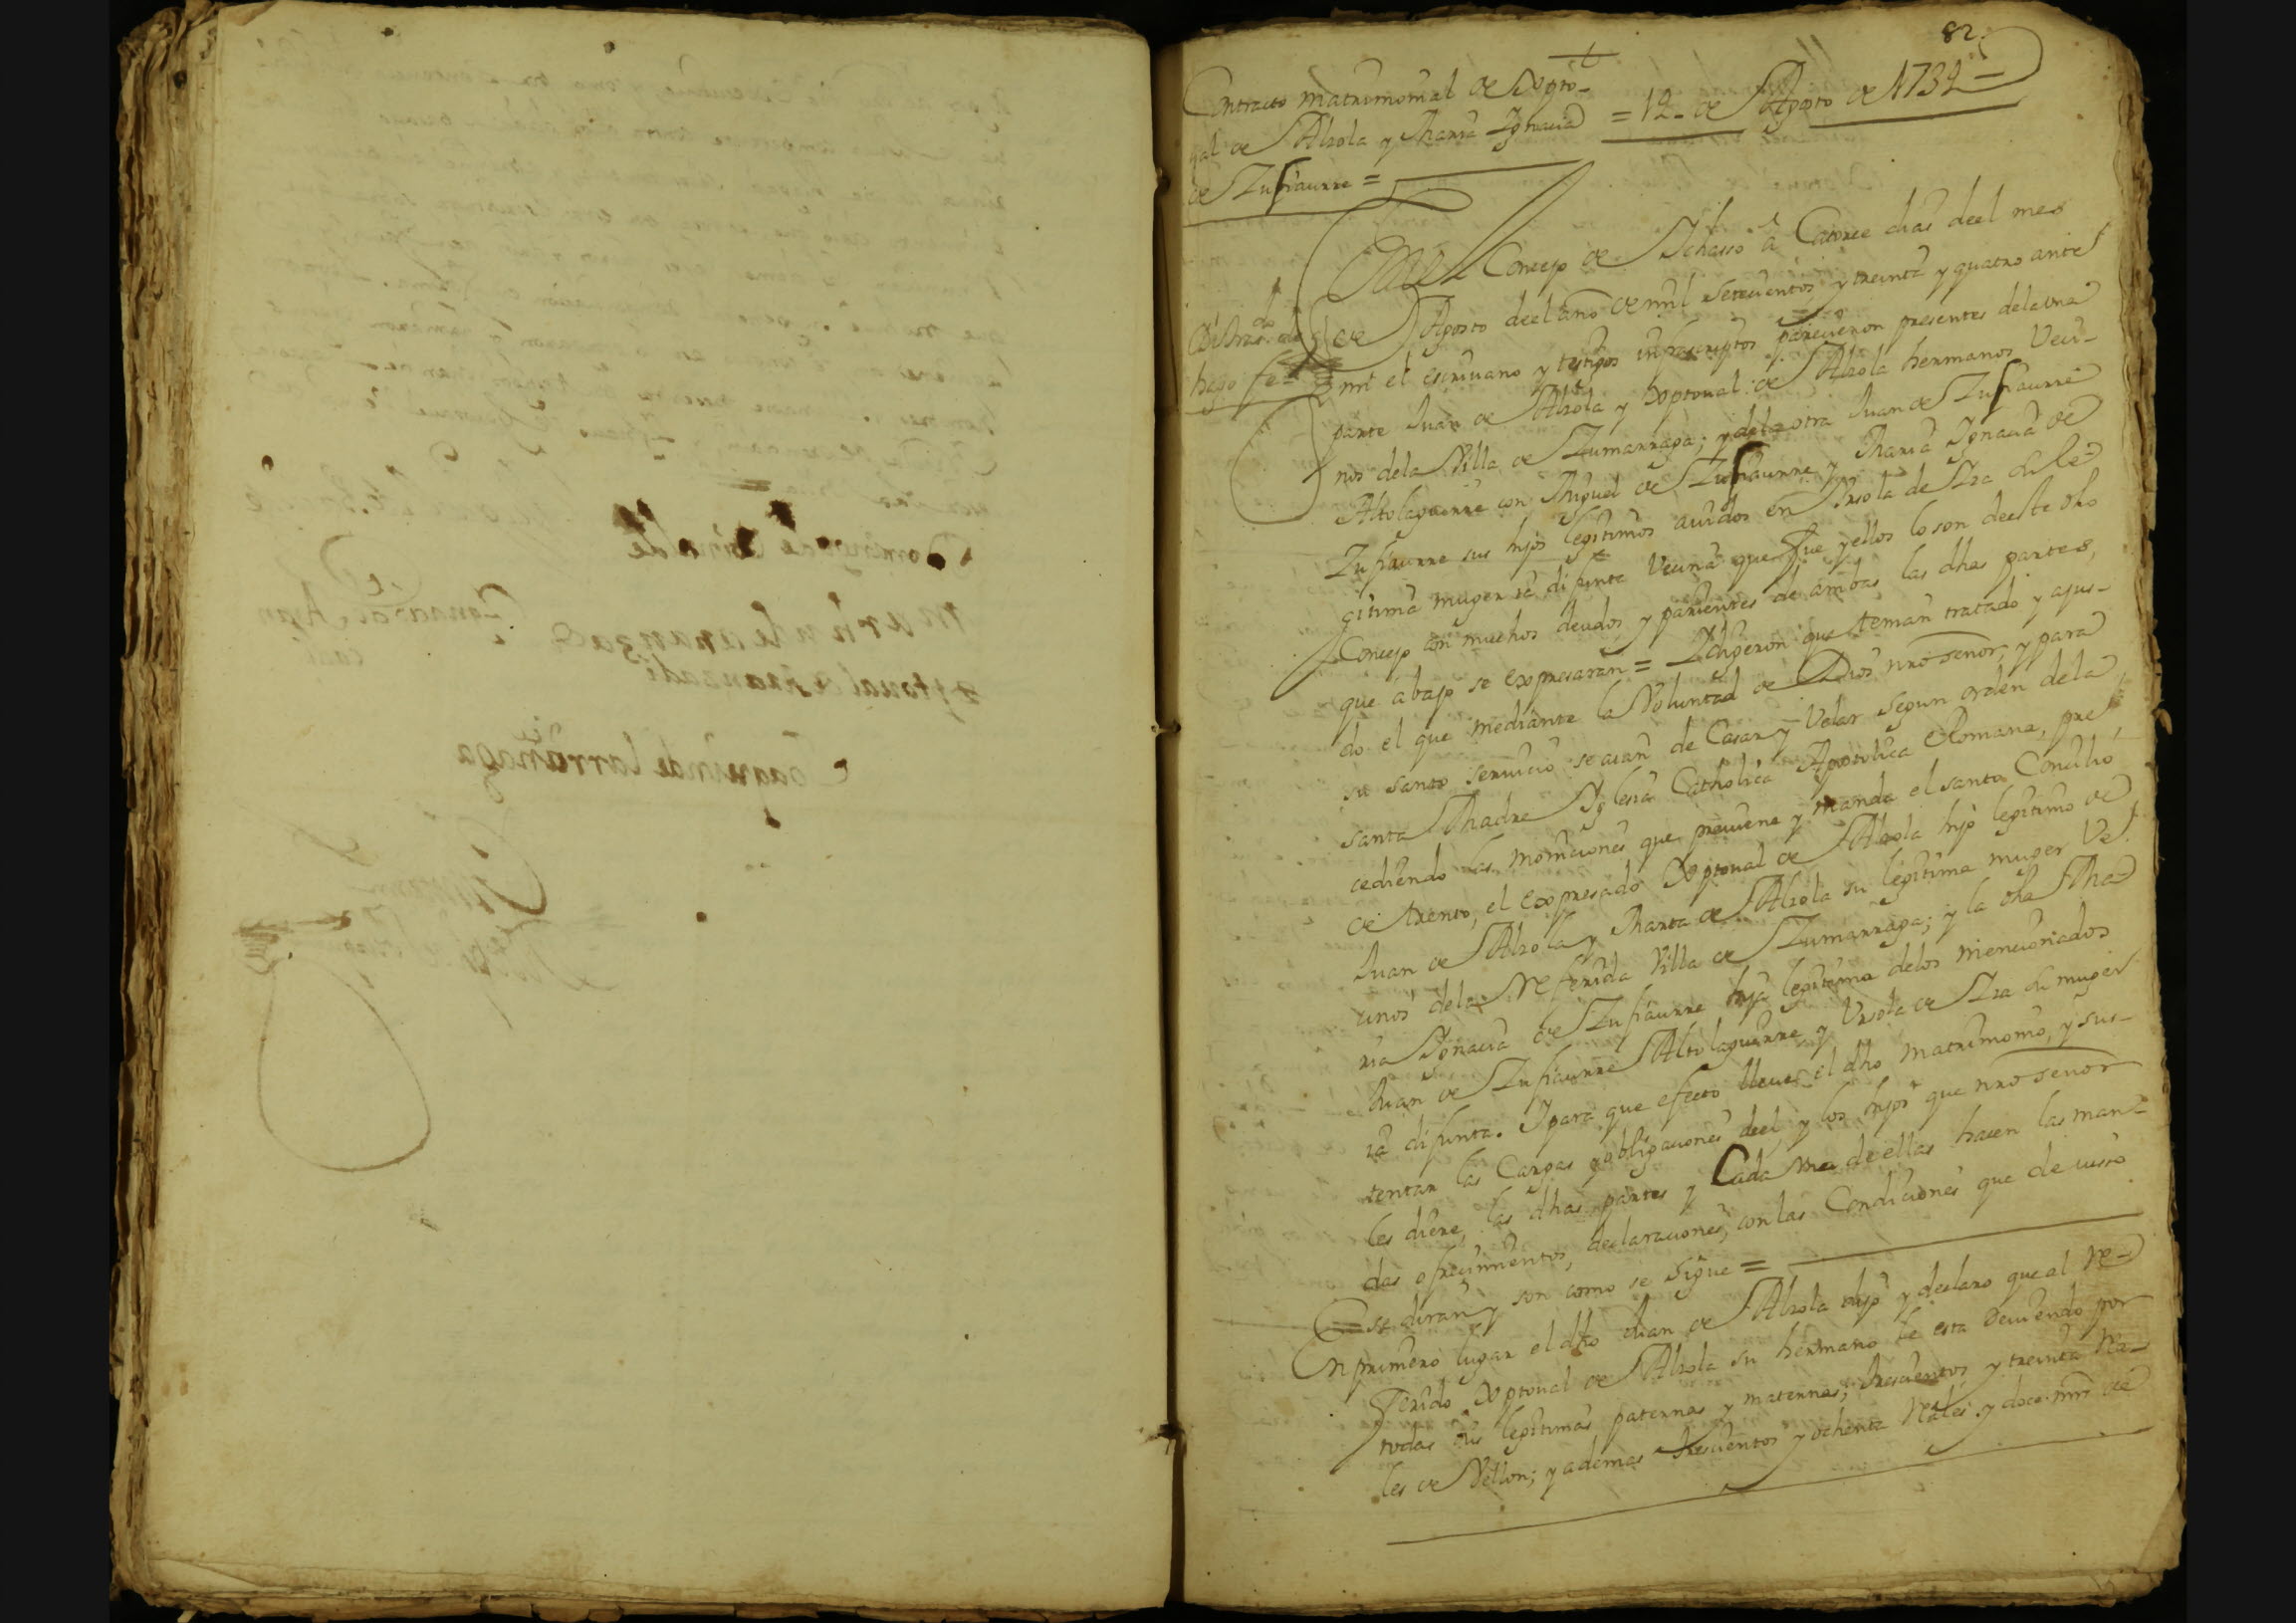 82.
Contracto matrimonial de Xpto-
ual de Alzola y Maria Ignacia = 12 de Agosto de 1734 =
de Zufiaurre =
En el Concejo de Ichasso a Catorce dias deel mes
de Agosto deel año de mil setecientos y treinta y quatro ante
hago fee
mi el escriuano y testigos infrascriptos parecieron presentes dela una
parte Juan de Alzola y Xptoual de Alzola hermanos Veci-
nos dela Villa de Zumarraga; y dela otra Juan de Zufiaurre
Altolaguirre con Miguel de Zufiaurre y Maria Ignacia de
Zufiaurre sus hijos legitimos auidos en Ursola de Iza su le-
gitima muger ia difunta Vecina que fue y ellos lo son deeste dho
Concejo con muchos deudos y parientes de ambas las dhas partes,
que abajo se expresaran = I digeron que tenian tratado y ajus-
do el que mediante la Voluntad de Dios nro señor, y para
su santo seruicio se aian de Casar y Velar segun orden dela
santa Madre Iglesia Catholica Apostolica Romana, pre
cediendo las moniciones que preuiene y manda el santo Concilio
de trento, el expresado Xptoual de Alzola hijo legitimo de
Juan de Alzola y Marta de Alzola su legitima muger Ve
cinos dela Referida Villa de Zumarraga; y la dha Ma-
ria Ignacia de Zufiaurre hija legitima delos mencionados
Juan de Zufiaurre Altolaguirre y Ursola de Iza su muger
ia difunta. I para que efecto lleue el dho matrimonio, y sus-
tentar las Cargas y obligaciones deel, y los hijos que nro señor
les diere, las dhas partes y Cada una de ellas hacen las man-
das ofrecimientos, declaraciones, con las Condiciones que de iusso
se diran y son como se sigue =
En primero lugar el dho Juan de Alzola dijo y declaro que al Re-
ferido Xptoual de Alzola su hermano le esta deuiendo por
todas sus legitimas paternas y maternas, trescientos y treinta Rea-
les de Vellon; y ademas trescientos y ochenta Reales y doce mrs de